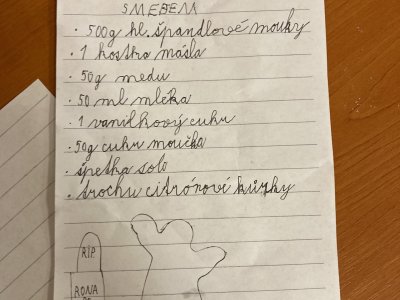 SMEBEM
· 500g hl. špandlové mouky
· 1 kostra másla
· 50g medu
· 50 ml mléka
· 1 vanilkový cukr
· 50g cukr moučka
· špetka solo
· trochu citrónové kůrky
RIP.
RONA